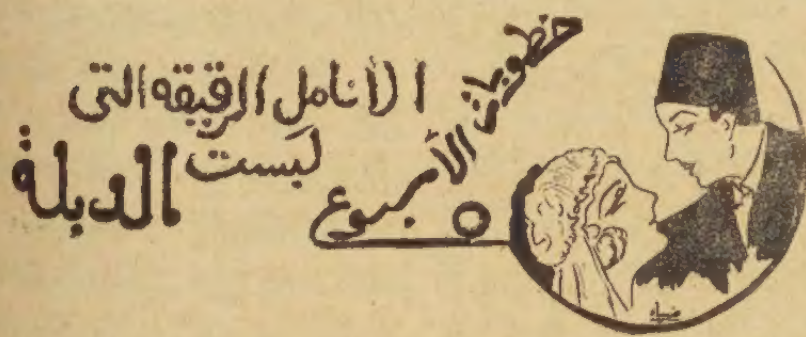 خطوبات الأسبوع
الأنامل الرقيقه التى
لبست الدبلة
ضياء